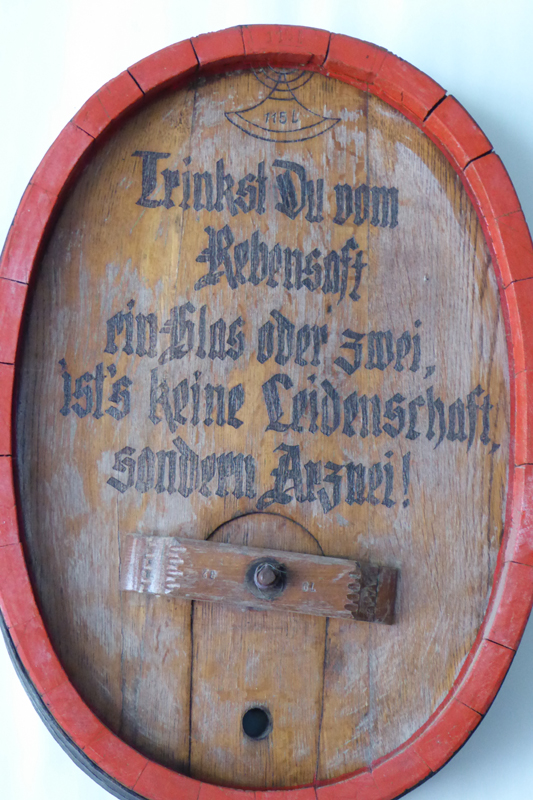 115 L
Trinkst Du vom
Rebensaft
ein Glas oder zwei,
ist's keine Leidenschaft,
sondern Arznei!